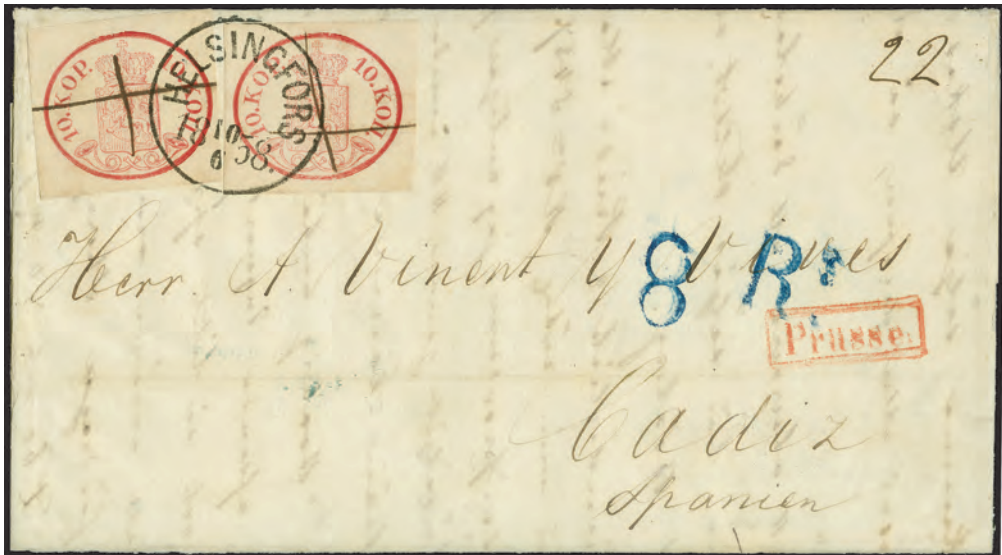 10.KOP. 10.KOP. 10.КОП.
HELSINGFORS
1858.
10
6
22
Herr. A. Vinent y Vives
8 Rs
Prusse.
Cadiz
Spanien